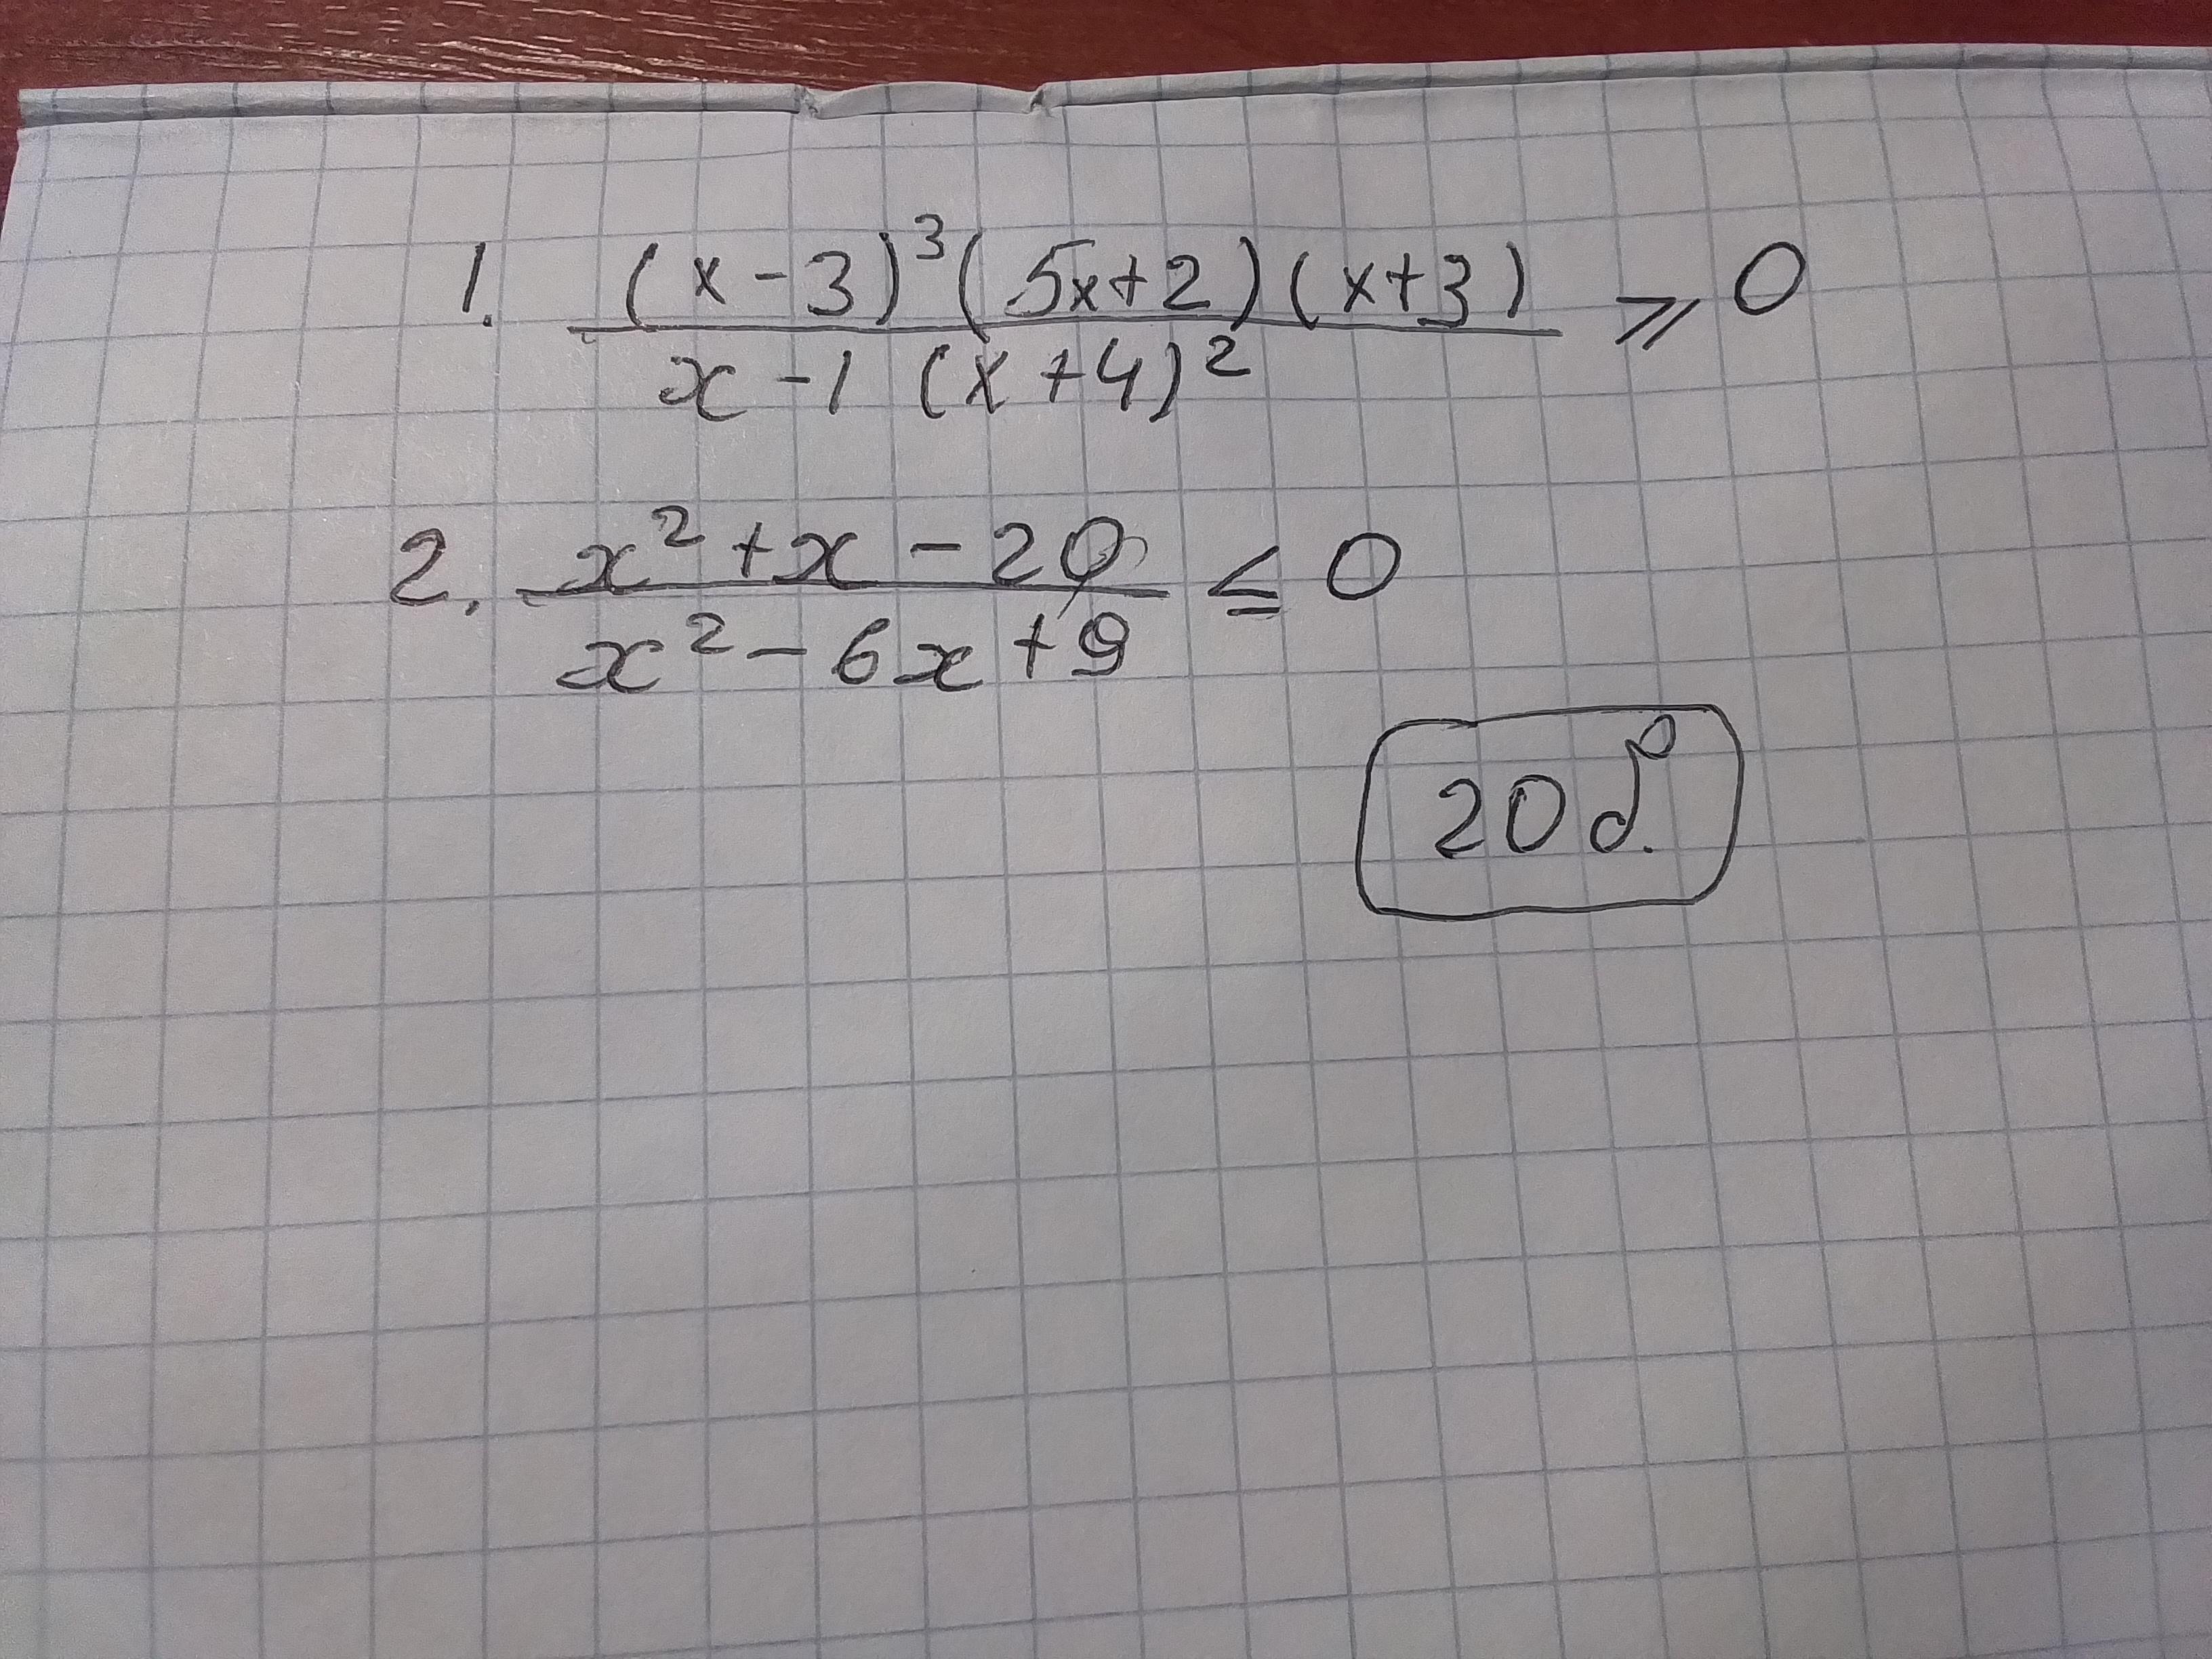 1. (x-3)³(5x+2)(x+3) / x-1 (x+4)² ⩾ 0
2. x²+x-20 / x²-6x+9 ≤ 0
20 б.